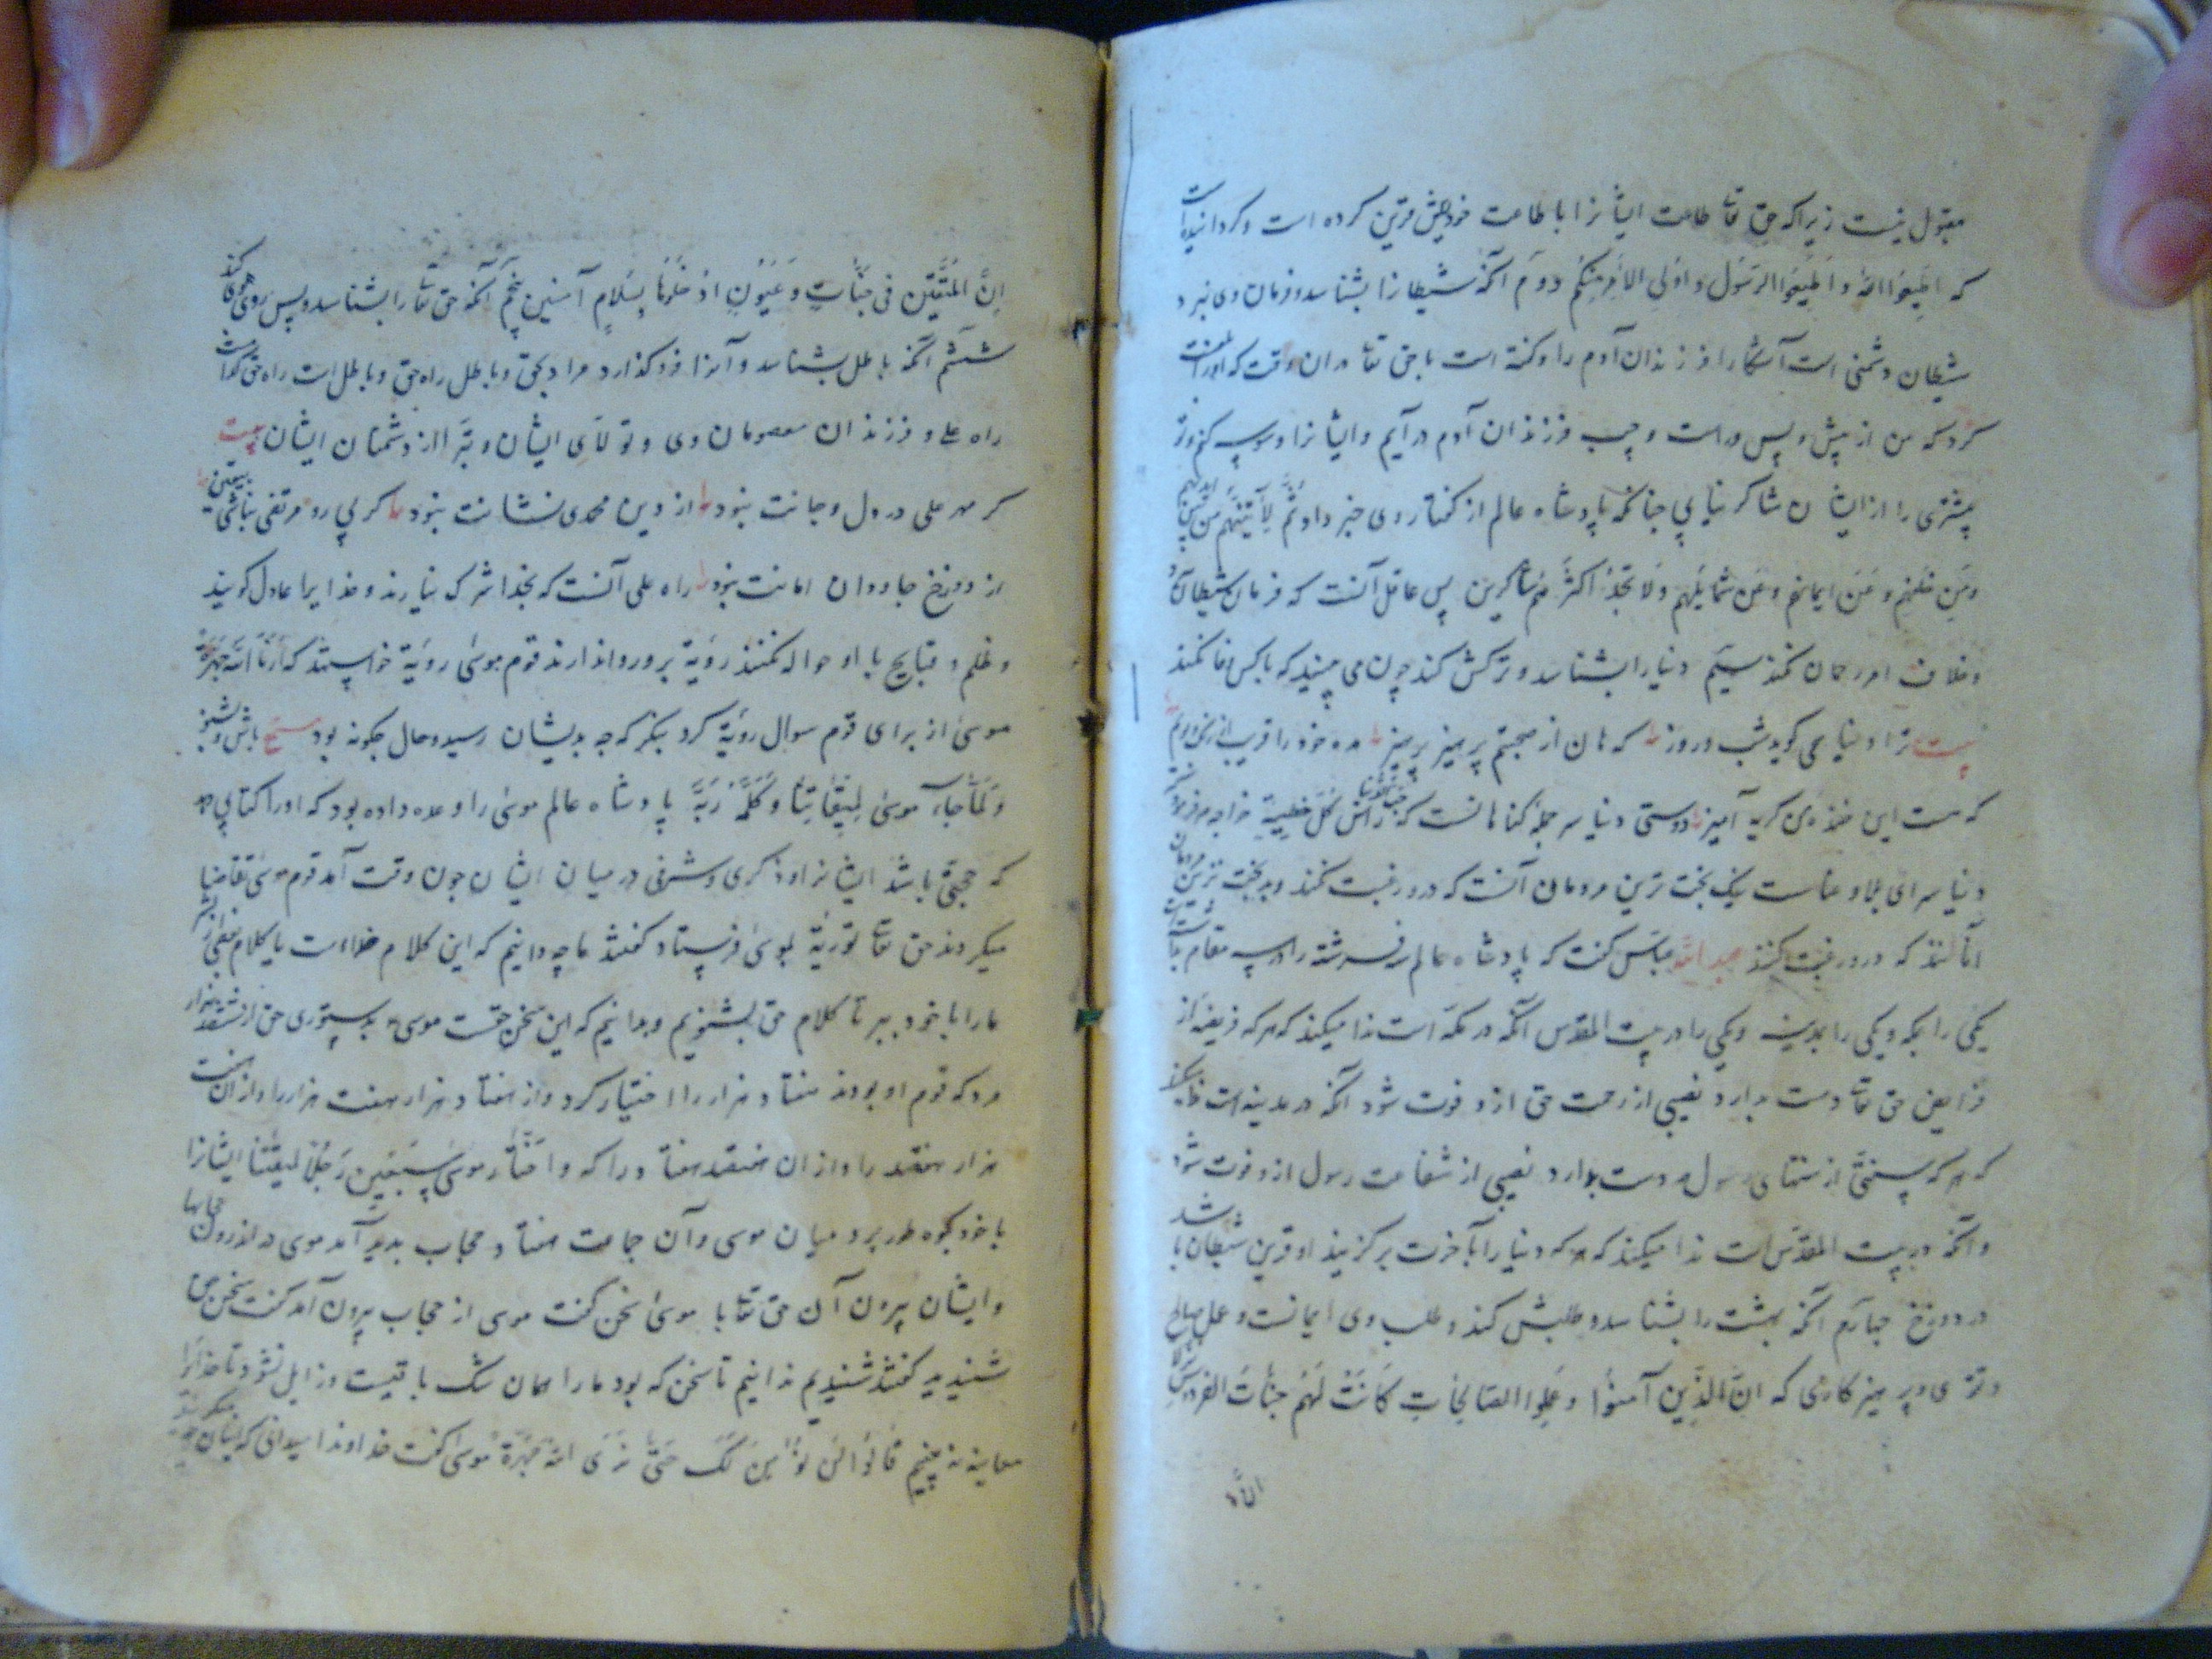 مقبول نیست زیرا که حق تعا طاعت ایشانرا با طاعت خود قرین کرده است و کردانیده است
که اطیعوا الله و اطیعوا الرسول و اولی الامر منکم دوم آنکه شیطانرا بشناسد و فرمان وی نبرد
شیطان دشمنی است آشکارا فرزندان آدم را و کفته است با حق تعا در ان وقت که او را لعنت
کرد که من از پیش و پس و راست و چپ فرزندان آدم در آیم و ایشانرا وسوسه کنم و تو
بیشتری را از ایشان شاکر نیابی چنانکه پادشاه عالم از کفتار وی خبر داد ثم لآتینهم من بین ایدیهم
و من خلفهم و عن ایمانهم و عن شمایلهم و لا تجد اکثرهم شاکرین پس عاقل آنست که فرمان شیطان
و خلاف امر رحمان نکند سیم دنیا را بشناسد و ترکش کند چون می بیند که با کس وفا نکند
بیت ترا دنیا همی کوید شب و روز که هان از صحبتم پرهیز پرهیز مده خود را فریب از رنک و بویم
که هست این خنده ی کریه آمیز دوستی دنیا سر جمله کناهانست که حب الدنیا راس کل خطیئة خواجه فرمود
دنیا سرای بلا و عناست نیک بخت ترین مردمان آنست که درو رغبت نکند و بدبخت ترین مردمان
آنانند که درو رغبت کنند عبد الله عباس کفت که پادشاه عالم سه فرشته را در سه مقام
یکی را بمکه و یکی را بمدینه و یکی را در بیت المقدس آنکه در مکه است ندا میکند که هر که فریضه از
فرایض حق تعا دست بدارد نصیبی از رحمت حق ازو فوت شود آنکه در مدینه است ندا میکند
که هر که سنتی از سنتهای رسول دست بدارد نصیبی از شفاعت رسول ازو فوت شود
و آنکه در بیت المقدس است ندا میکند که هر که دنیا را بآخرت برکزیند او قرین شیطان باشد
در دوزخ چهارم آنکه بهشت را بشناسد و طلبش کند و طلب وی ایمانست و عمل صالح
و تقوی و پرهیزکاری که ان الذین آمنوا و عملوا الصالحات کانت لهم جنات الفردوس
ان المتقین فی جنات و عیون ادخلوها بسلام آمنین پنجم آنکه حق تعا را بشناسد و پس روی حق کند
ششم آنکه باطل بشناسد و آنرا فرو کذارد مراد بحق و باطل راه حق و باطل است راه حق کدامست
راه علی و فرزندان معصومان وی و تولای ایشان و تبرا از دشمنان ایشان بیت
کر مهر علی در دل و جانت نبود از دین محمدی نشانت نبود کر پی رو مرتضی نباشی بیقین
از دوزخ جاودان امانت نبود راه علی آنست که بخدا شرک نیارند و خدایرا عادل کویند
و ظلم و قبایح با او حواله نکنند رؤیة برو روا ندارند قوم موسی رؤیة خواستند که ارنا الله جهرة
موسی از برای قوم سوال رؤیة کرد بنکر که چه بدیشان رسید و حال چکونه بود باش و بشنو
و لما جاء موسی لمیقاتنا و کلمه ربه پادشاه عالم موسی را وعده داده بود که او را کتابی دهد
که حجتی باشد ایشانرا و ذکری و شرفی در میان ایشان چون وقت آمد قوم موسی تقاضا
میکردند حق تعا توریة بموسی فرستاد کفتند ما چه دانیم که این کلام خداست یا کلام
ما را با خود ببر تا کلام حق بشنویم و بدانیم که این سخن حقست موسی بدستوری حق از هزار
مرد که قوم او بودند هفتاد هزار را اختیار کرد و از هفتاد هزار هفت هزار را و از ان هفت
هزار هفتصد را و از ان هفتصد هفتاد را که و اختار موسی سبعین رجلا لمیقاتنا ایشانرا
با خود بکوه طور برد میان موسی و آن جماعت هفتاد حجاب بدید آمد موسی در اندرون حجابها
و ایشان بیرون آن حق تعا با موسی سخن کفت موسی از حجاب بیرون آمد کفت سخن حق
شنیدید کفتند شنیدیم ندانیم تا سخن که بود ما را همان شک باقیست و زایل نشود تا خدایرا
معاینه نبینیم قالوا لن نؤمن لک حتی نری الله جهرة موسی کفت خداوندا میدانی که ایشان